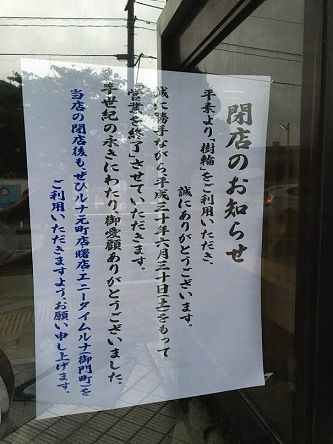 閉店のお知らせ
平素より、「樹輪」をご利用いただき、
誠にありがとうございます。
誠に勝手ながら、平成三十年六月三十日(土)をもって
"営業を終了"させていただきます。
半世紀の永きにわたり御愛顧ありがとうございました。
当店の閉店後もぜひルナ元町店・曙店・エニータイムルナ(御門町)を
ご利用いただきますよう、お願い申し上げます。